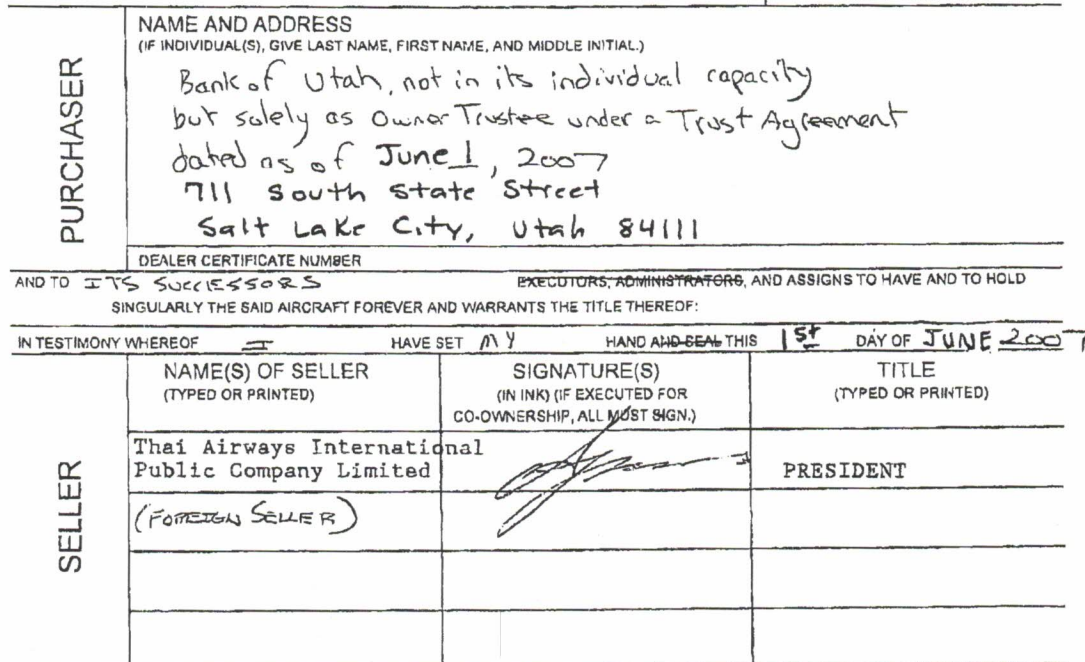 NAME AND ADDRESS
(IF INDIVIDUAL(S), GIVE LAST NAME, FIRST NAME, AND MIDDLE INITIAL.)
PURCHASER
Bank of Utah, not in its individual capacity
but solely as Owner Trustee under a Trust Agreement
dated as of June 1, 2007
711 South State Street
Salt Lake City, Utah 84111
DEALER CERTIFICATE NUMBER
AND TO ITS SUCCESSORS EXECUTORS, ADMINISTRATORS, AND ASSIGNS TO HAVE AND TO HOLD
SINGULARLY THE SAID AIRCRAFT FOREVER AND WARRANTS THE TITLE THEREOF:
IN TESTIMONY WHEREOF I HAVE SET MY HAND AND SEAL THIS 1st DAY OF JUNE 2007
SELLER
NAME(S) OF SELLER SIGNATURE(S) TITLE
(TYPED OR PRINTED) (IN INK) (IF EXECUTED FOR (TYPED OR PRINTED)
CO-OWNERSHIP, ALL MUST SIGN.)
Thai Airways International
Public Company Limited PRESIDENT
(FOREIGN SELLER)